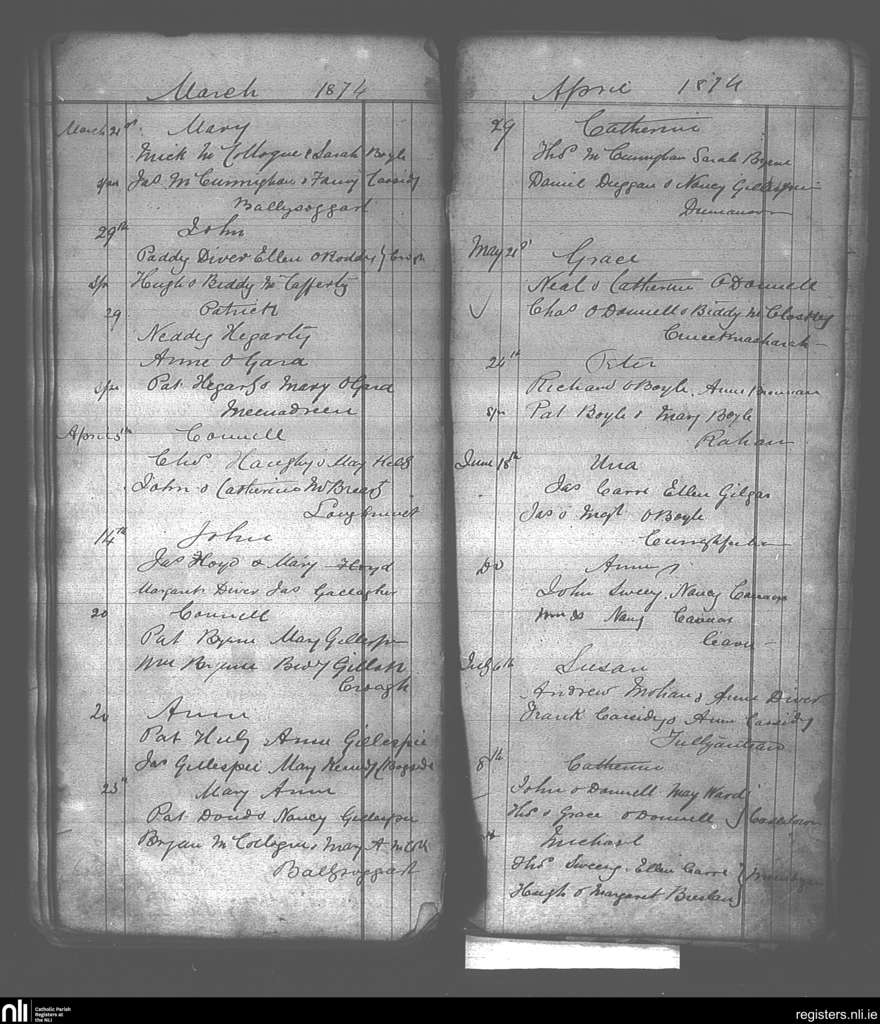 March 1874
March 21st Mary
Mick McCollogue & Sarah Boyle
Spr Jas McCunnighan & Fanny Cassidy
Ballysoggart
29th John
Paddy Diver Ellen O Roddy
Spr Hugh & Biddy McCafferty
29 Patrick
Neddy Hegarty
Anne O Gara
Spr Pat Hegarty & Mary O Gara
Meenadreen
April 5th Connell
Chs Haughy & May
John & Catherine
14th John
Jas Floyd & Mary Floyd
Margaret Diver Jas Gallagher
20 Connell
Pat Byrne Mary Gillespie
Wm Byrne Bidy
Croagh
20 Anne
Pat Anne Gillespie
Jas Gillespie May Kennedy
23rd Mary Anne
Pat Nancy Gillespie
Bryan McCollogue & Mary A
Ballysoggart
April 1874
29 Catherine
Ths McCunnighan Sarah Byrne
Daniel Duggan & Nancy Gillespie
Drimanoo
May 21st Grace
Neal & Catherine O Donnell
Chas O Donnell & Biddy McCloskey
24th Peter
Richard O Boyle Anne Brennan
Spr Pat Boyle & Mary Boyle
Rahan
June 18th Una
Jas Carre Ellen
Jas & Magt O Boyle
Do Anne
John Sweeny Nancy
Nancy
July 6th Susan
Andrew Mohan & Anne Diver
Frank Cassidy & Anne Cassidy
8th Catherine
John O Donnell May Ward
Ths & Grace O Donnell
Michael
Ths Sweeny Ellen Carre
Hugh & Margaret Breslan
nli
Catholic Parish
Registers at
the NLI
registers.nli.ie